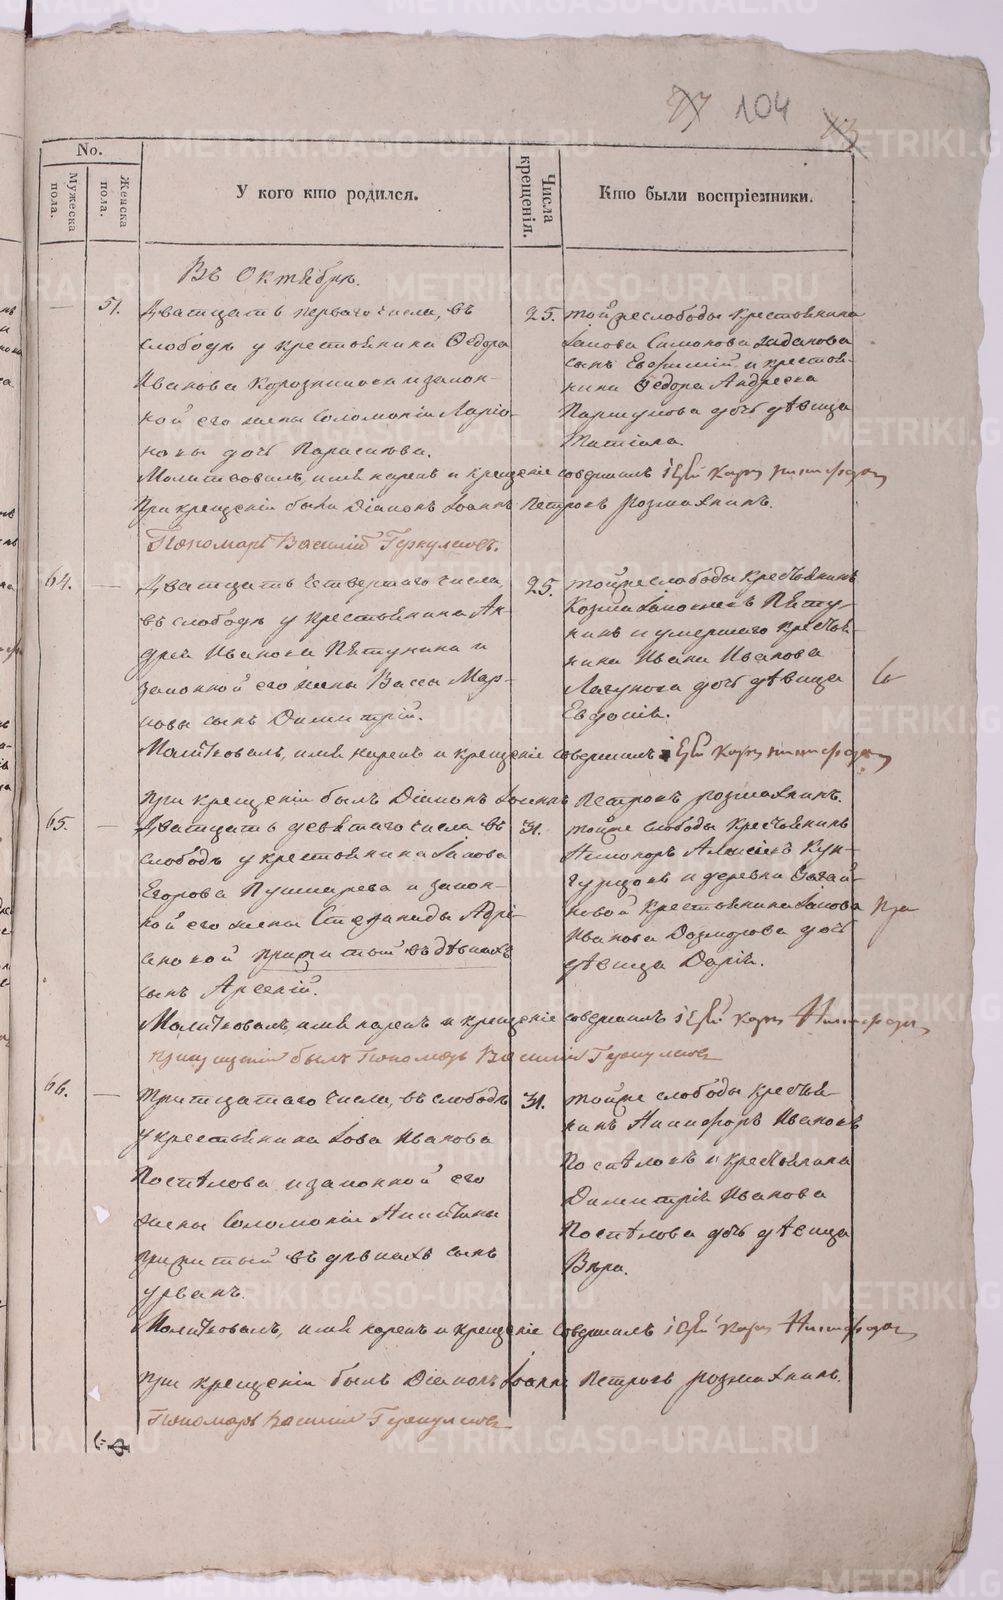 104
No.
Мужеска пола.
Женска пола.
У кого кто родился.
Числа крещенія.
Кто были воспріемники.
Въ Октябрѣ.
51.
Дватцать перваго числа, въ
слободѣ у крестьянина Ѳедора
Иванова и закон-
ной его жены Соломоніи Ларіо-
новы дочь
25.
тойже слободы крестьянина
Іакова Симонова
сынъ Евфимій и крестья-
нина Ѳедора Андреева
Паршукова дочь дѣвица
Татіана.
Молитвовалъ, имя нарекъ и крещеніе совершилъ іерей
При крещеніи были Діаконъ Іоаннъ Петровъ
Пономарь Василій
64.
Дватцать четвертаго числа,
въ слободѣ у крестьянина Ан-
дрея Иванова Пѣтухина и
законной его жены Вассы Мар-
ковы сынъ Димитрій.
25.
тойже слободы крестьянинъ
Козма Пѣту-
хинъ и умершаго крестья-
нина Ивана Иванова
дочь дѣвица
Евдокія.
Молитвовалъ, имя нарекъ и крещеніе совершилъ іерей
При крещеніи былъ Діаконъ Іоаннъ Петровъ
65.
Дватцать девятаго числа въ
слободѣ у крестьянина Іакова
Егорова Пушкарева и закон-
ной его жены Стефаниды Адрі-
ановой прижитый въ дѣвкахъ
сынъ Арсеній.
31.
тойже слободы крестьянинъ
Никифоръ Алексѣевъ Кун-
гурцовъ и деревни
крестьянина Іакова
Иванова дочь
дѣвица Дарія.
Молитвовалъ, имя нарекъ и крещеніе совершилъ іерей
При крещеніи былъ Пономарь Василій
66.
Тритцатаго числа, въ слободѣ
у крестьянина Іова Иванова
Поспѣлова и законной его
жены Соломоніи Никитины
прижитый въ дѣвкахъ сынъ
Урванъ.
31.
тойже слободы крестья-
нинъ Никифоръ Ивановъ
Поспѣловъ и крестьянина
Димитрія Иванова
Поспѣлова дочь дѣвица
Вѣра.
Молитвовалъ, имя нарекъ и крещеніе совершилъ іерей
При крещеніи былъ Діаконъ Іоаннъ Петровъ
Пономарь Василій
METRIKI.GASO-URAL.RU